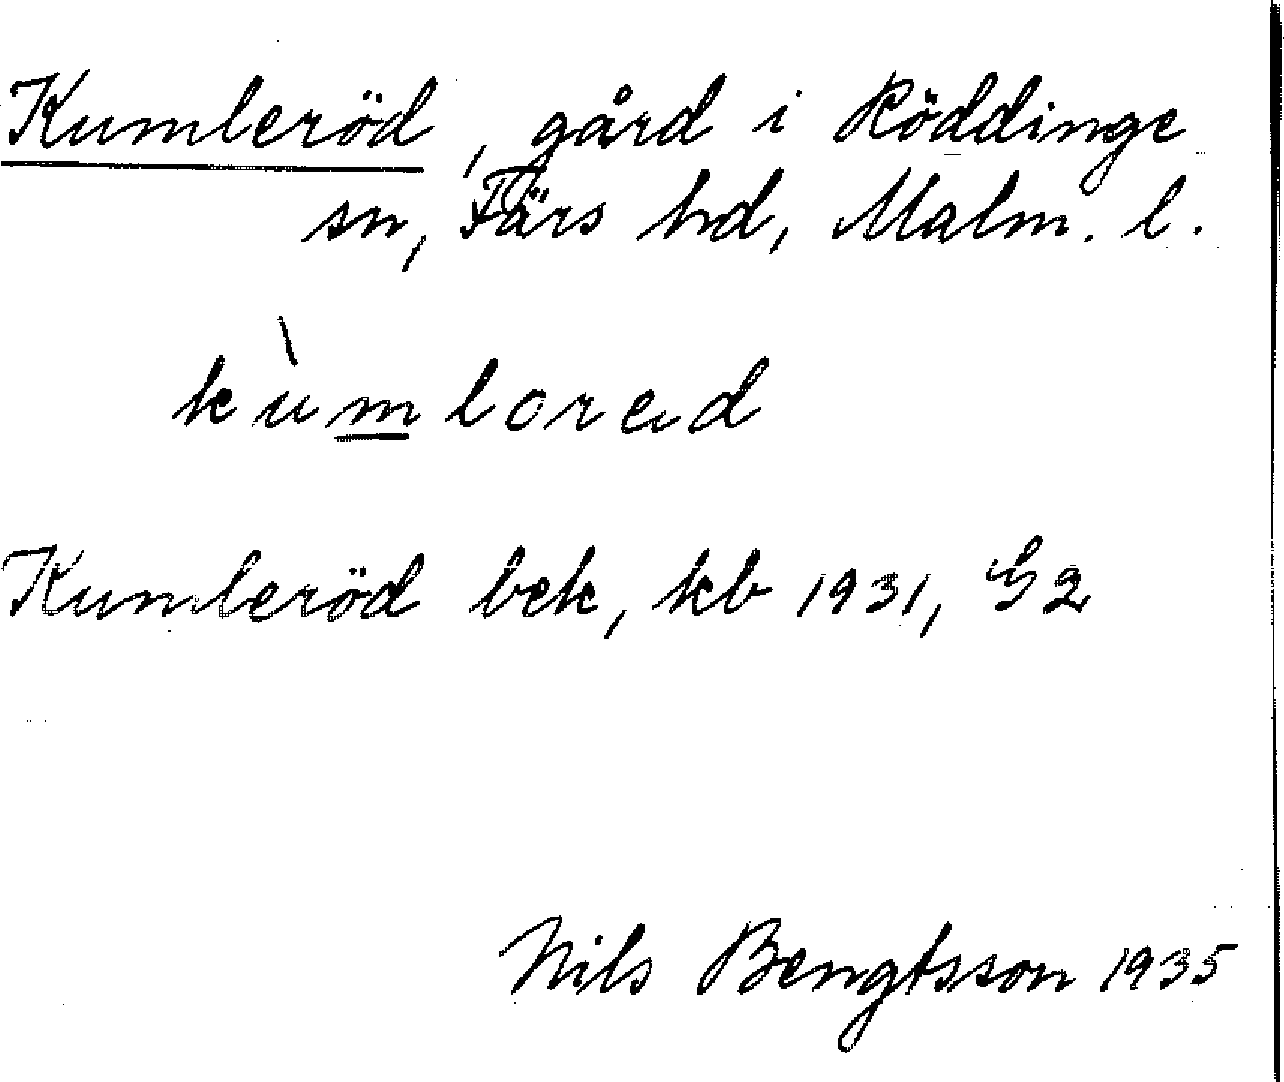 Kumleröd, gård i Röddinge
sn, Färs hd, Malm. l.
kùmlored
Kumleröd bek, kb 1931, G2
Nils Bengtsson 1935